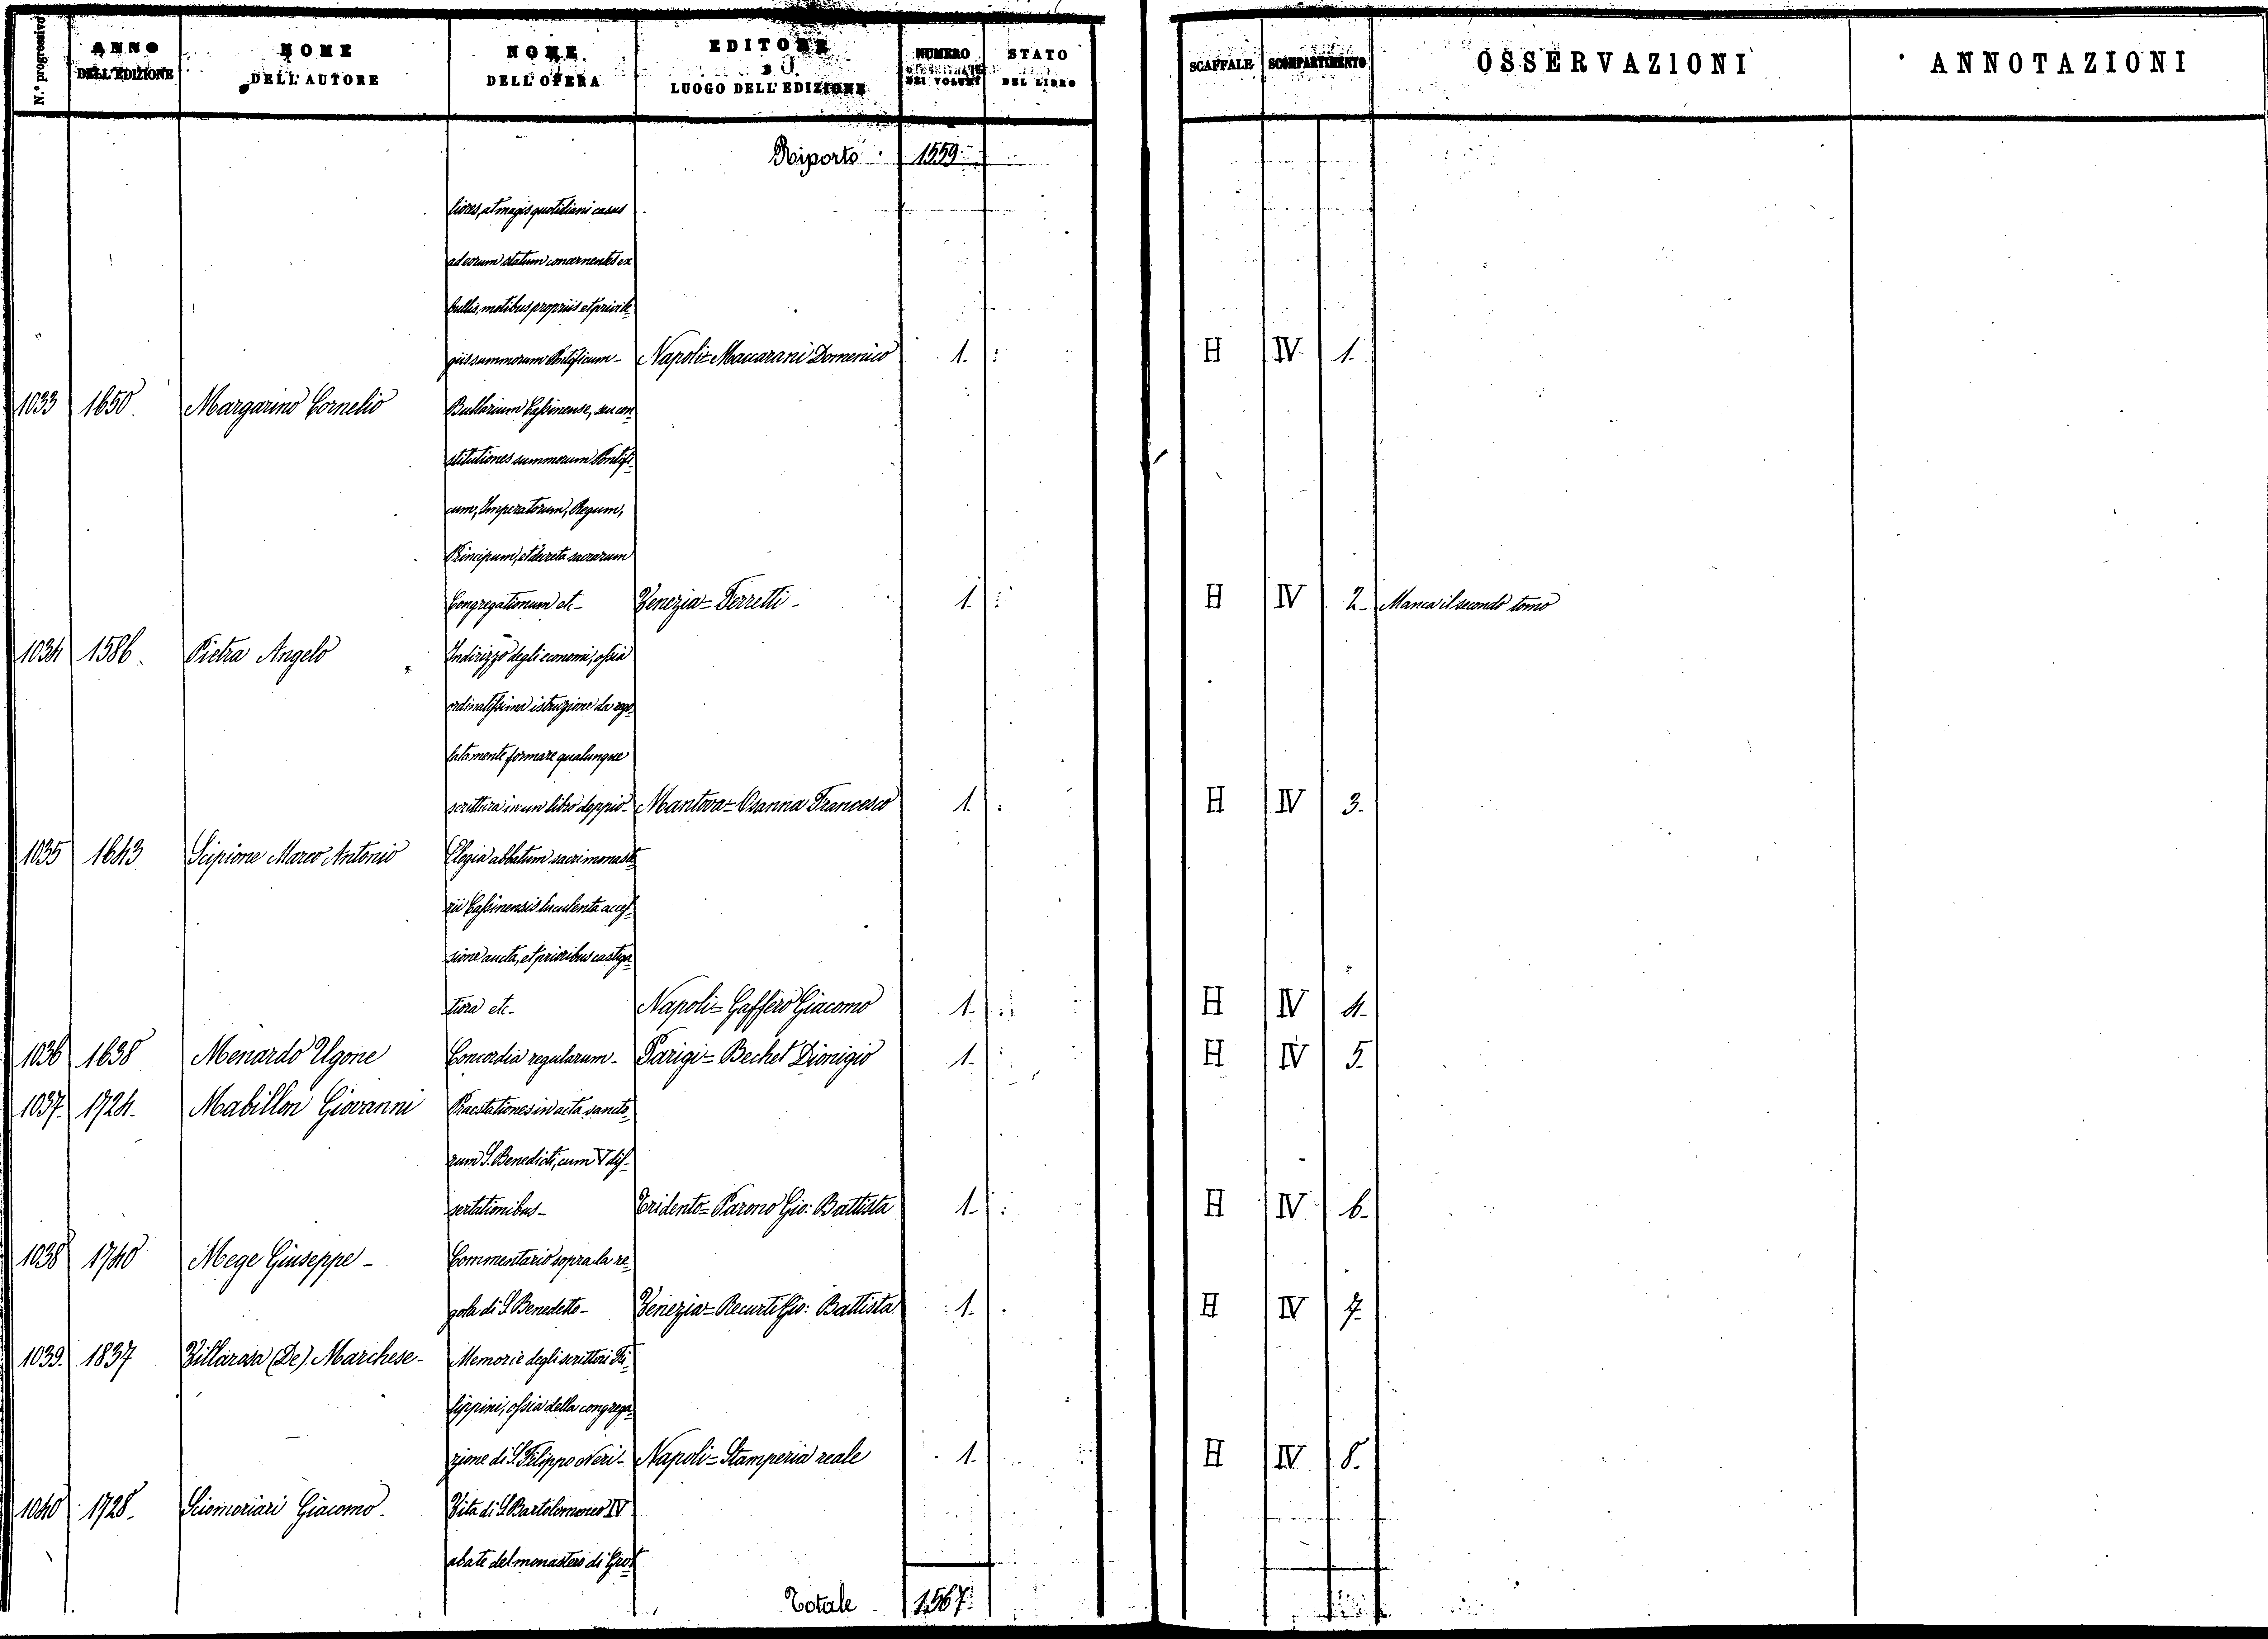 N.º progressivo ANNO DELL'EDIZIONE NOME DELL'AUTORE NOME DELL'OPERA EDITORE E LUOGO DELL'EDIZIONE NUMERO DEI VOLUMI STATO DEL LIBRO SCAFFALE SCOMPARTIMENTO OSSERVAZIONI ANNOTAZIONI
Riporto 1559
liores, at magis quotidiani casus
ad eorum statum concernentes ex
bullis, motibus propriis et privile-
giis summorum Pontificum - Napoli = Maccarani Domenico 1. H IV 1.
1033 1650. Margarino Cornelio Bullarium Cassinense, seu con-
stitutiones summorum Pontifi-
cum, Imperatorum, Regum,
Principum, et decreta sacrarum
Congregationum etc - Venezia = Ferretti - 1. H IV 2. Manca il secondo tomo
1034 1586. Pietra Angelo Indirizzo degli economi, ossia
ordinatissima istruzione da rego-
latamente formare qualunque
scrittura in un libro doppio - Mantova = Osanna Francesco 1. H IV 3.
1035 1643 Scipione Marco Antonio Elogia abbatum sacri monaste-
rii Cassinensis luculenta acces-
sione aucta, et prioribus castiga-
tiora etc - Napoli = Gaffero Giacomo 1. H IV 4.
1036 1638 Menardo Ugone Concordia regularum - Parigi = Bechet Dionigio 1. H IV 5.
1037. 1724. Mabillon Giovanni Praestationes in acta sancto-
rum S. Benedicti, cum V dis-
sertationibus - Tridento = Parono Gio: Battista 1. H IV 6.
1038 1740 Mege Giuseppe - Commentario sopra la re-
gola di S. Benedetto - Venezia = Recurti Gio: Battista 1. H IV 7.
1039. 1837 Villarosa (De) Marchese - Memorie degli scrittori Fi-
lippini, ossia della congrega-
zione di S. Filippo Neri - Napoli = Stamperia reale 1. H IV 8.
1040 1728. Sciomeriari Giacomo. Vita di S. Bartolommeo IV
abate del monastero di Grot-
Totale 1567.